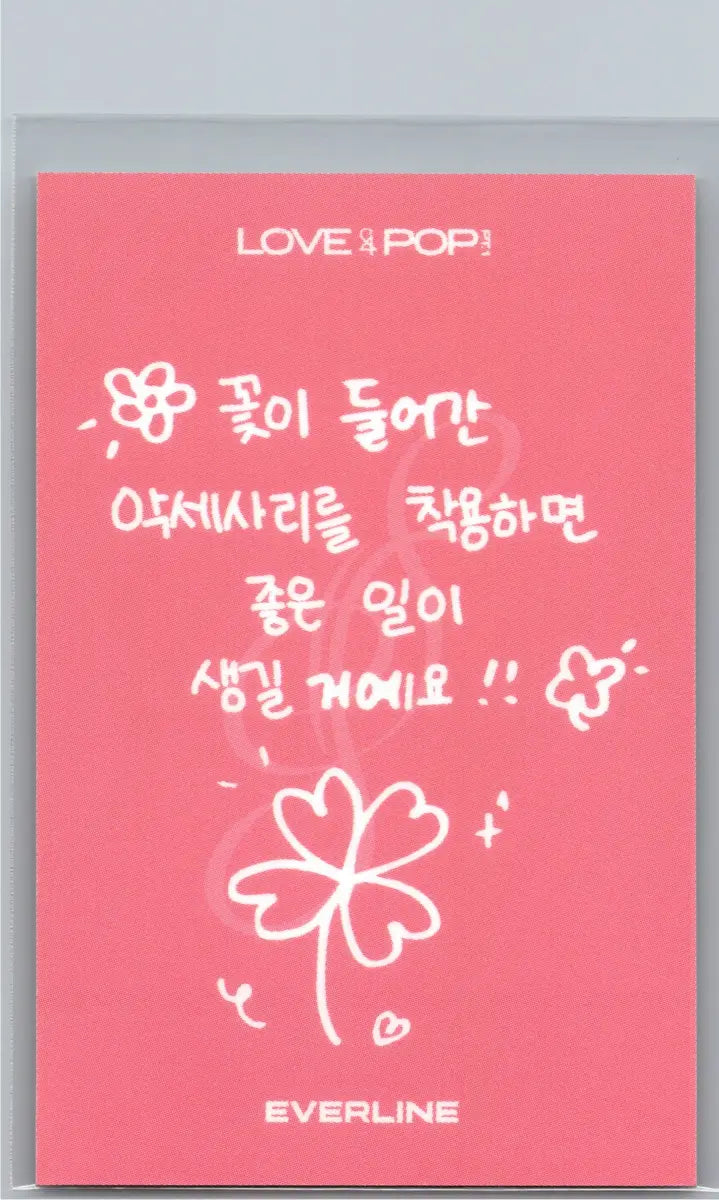 LOVE & POP pt.1
꽃이 들어간
악세사리를 착용하면
좋은 일이
생길 거예요!!
EVERLINE